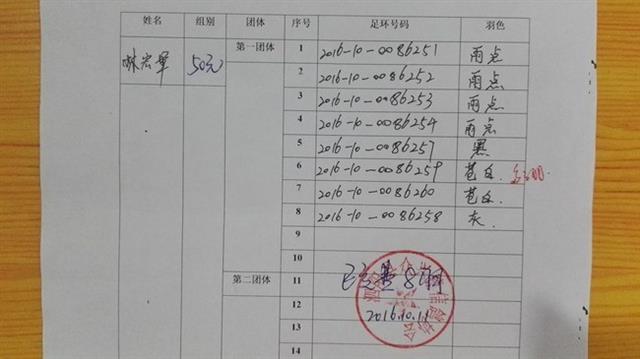 姓名 组别 团体 序号 足环号码 羽色
林宏军 50元 第一团体 1 2016-10-0086251 雨点
2 2016-10-0086252 雨点
3 2016-10-0086253 雨点
4 2016-10-0086254 雨点
5 2016-10-0086257 黑
6 2016-10-0086259 苍白.
7 2016-10-0086260 苍白.
8 2016-10-0086258 灰.
9
10
第二团体 11
12 2016.10.11
13
14